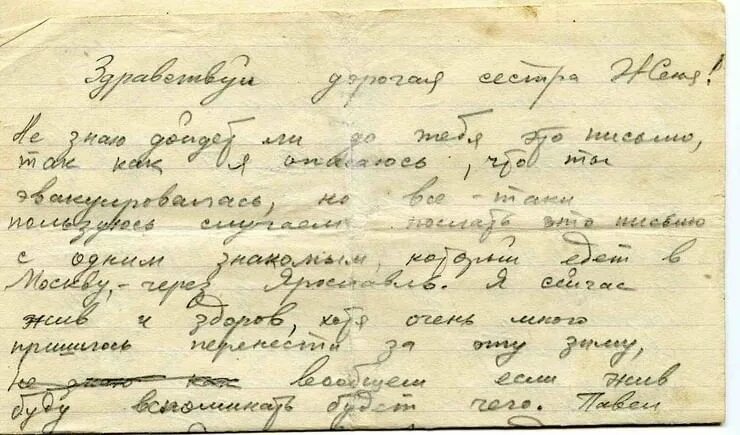 Здравствуй дорогая сестра Женя!
Не знаю дойдет ли до тебя это письмо,
так как я опасаюсь, что ты
эвакуировалась, но все-таки
пользуюсь случаем послать это письмо
с одним знакомым, который едет в
Москву,-через Ярославль. Я сейчас
жив и здоров, хотя очень много
пришлось перенести за эту зиму,
не знаю как вообщем если жив
буду вспоминать будет чего. Павел